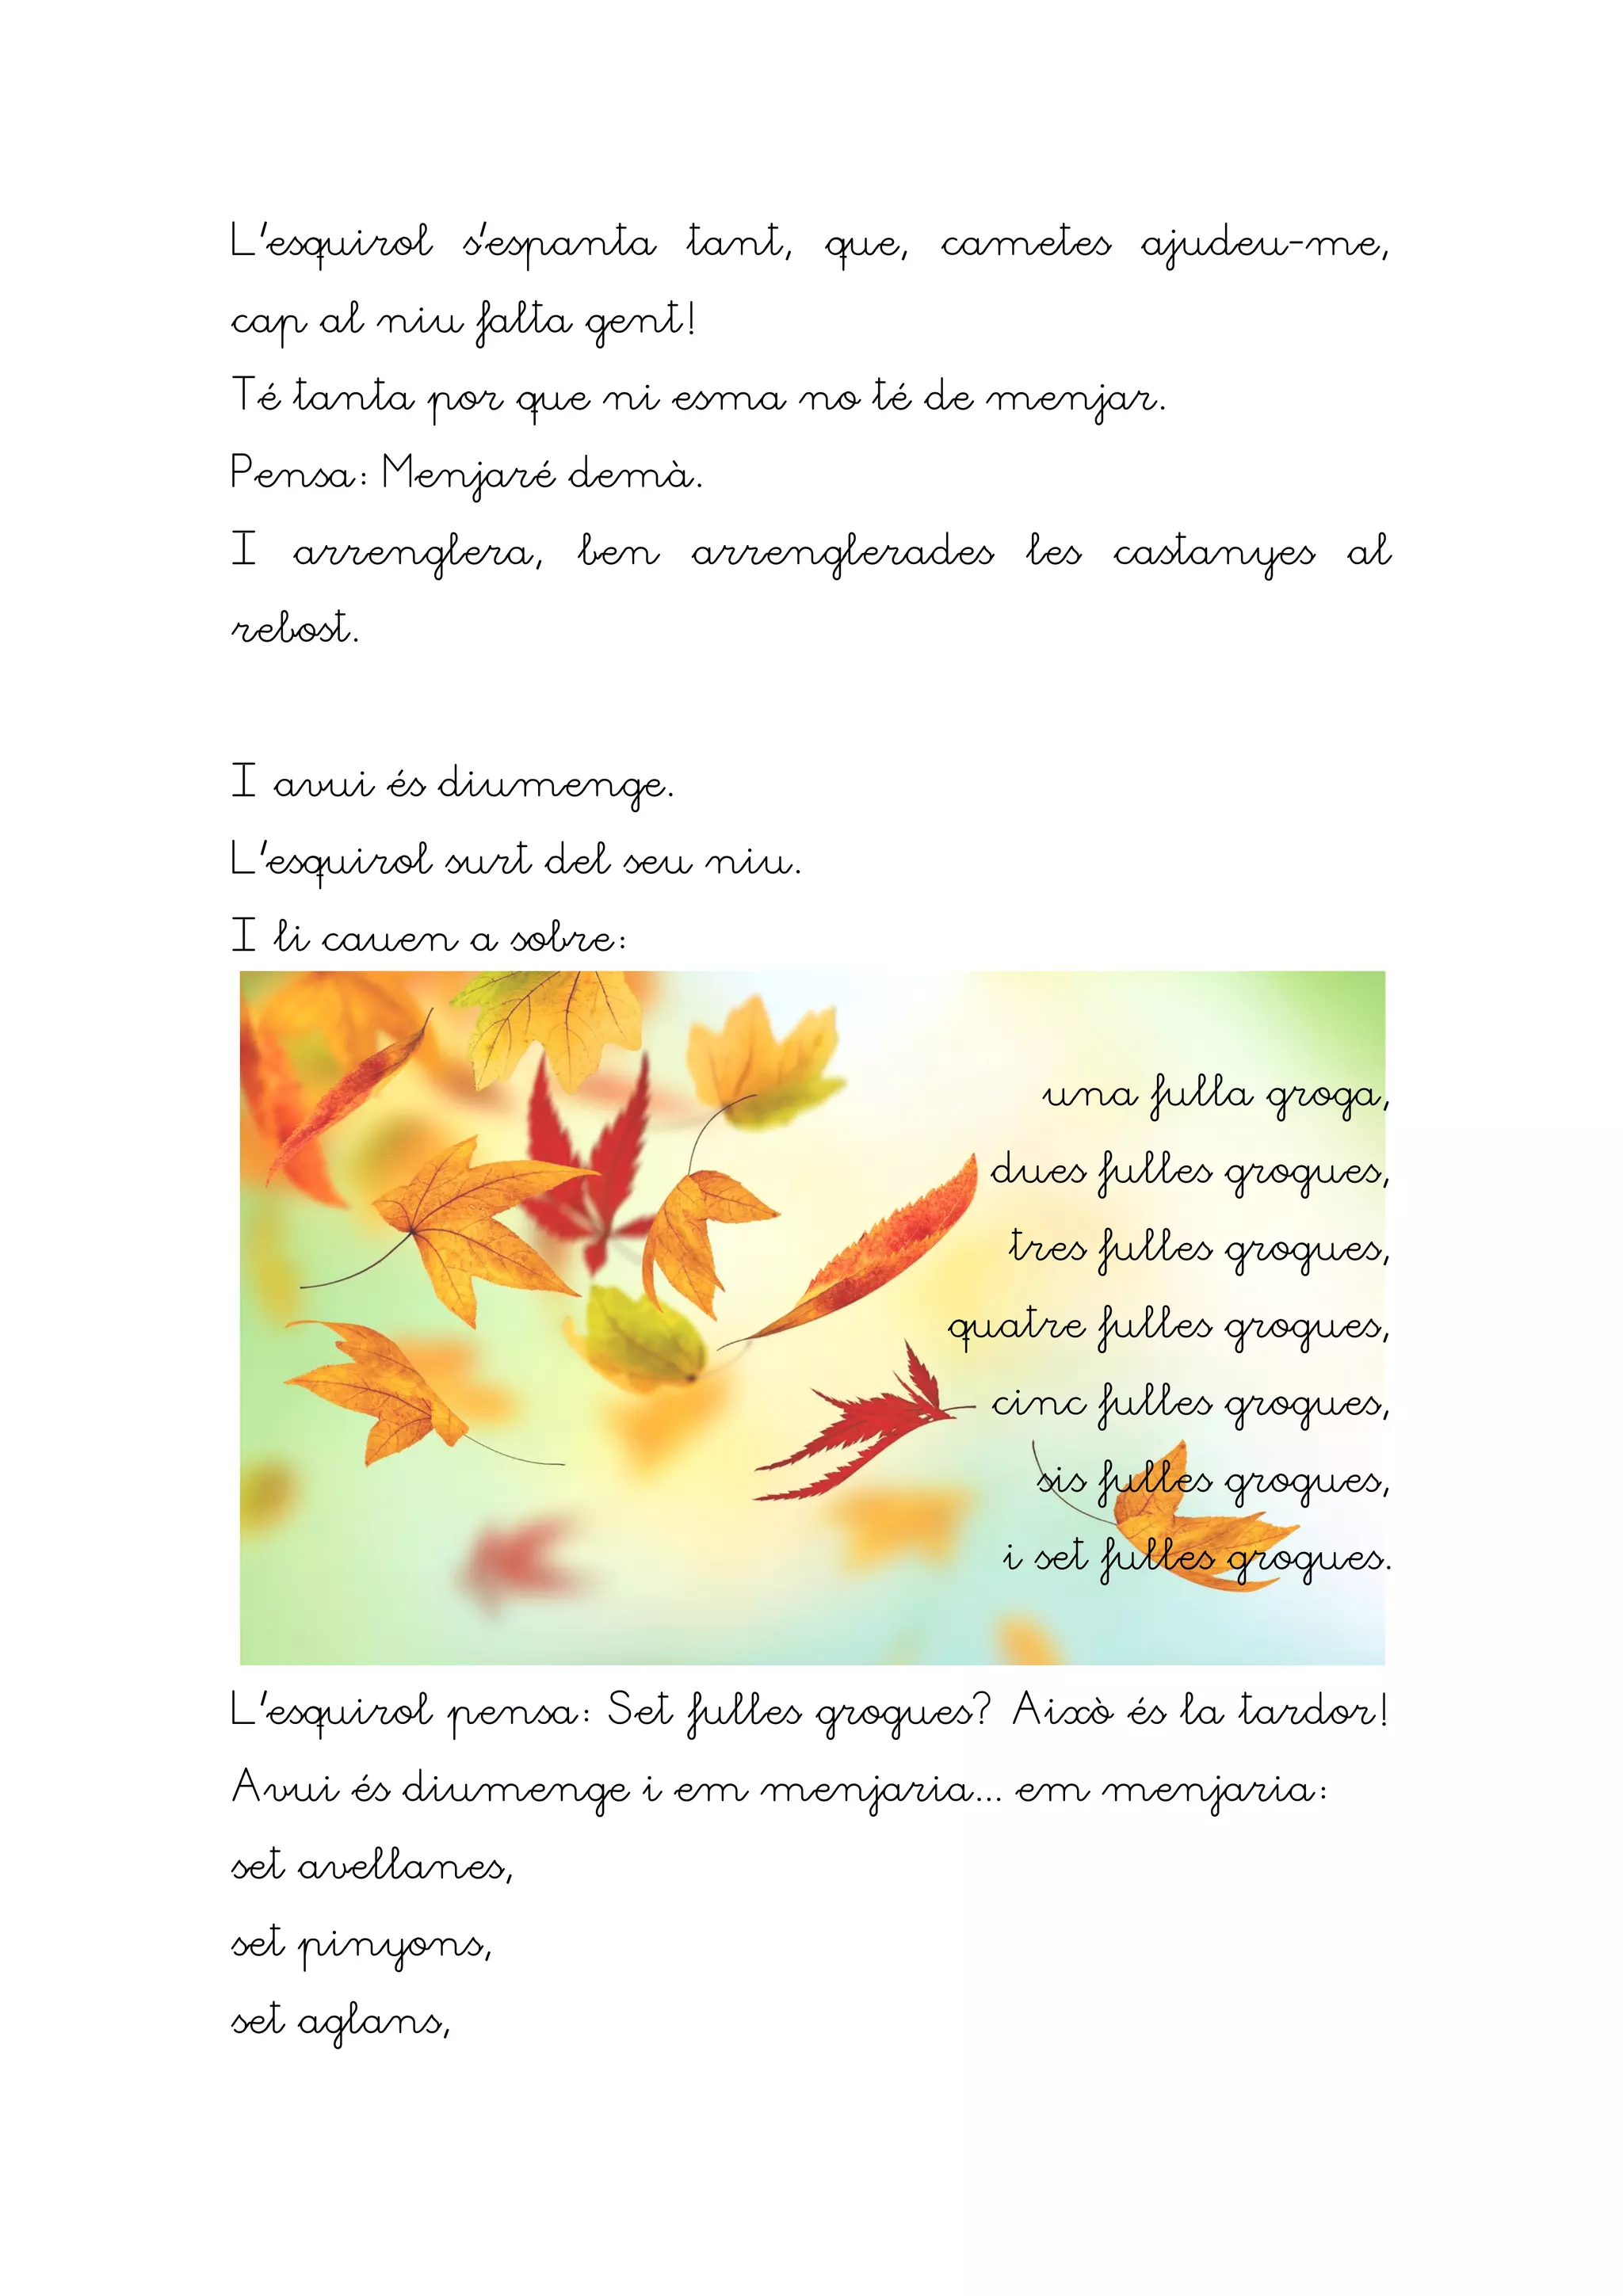 L'esquirol s'espanta tant, que, cametes ajudeu-me,
cap al niu falta gent!
Té tanta por que ni esma no té de menjar.
Pensa: Menjaré demà.
I arrenglera, ben arrenglerades les castanyes al
rebost.
I avui és diumenge.
L'esquirol surt del seu niu.
I li cauen a sobre:
una fulla groga,
dues fulles grogues,
tres fulles grogues,
quatre fulles grogues,
cinc fulles grogues,
sis fulles grogues,
i set fulles grogues.
L'esquirol pensa: Set fulles grogues? Això és la tardor!
Avui és diumenge i em menjaria... em menjaria:
set avellanes,
set pinyons,
set aglans,